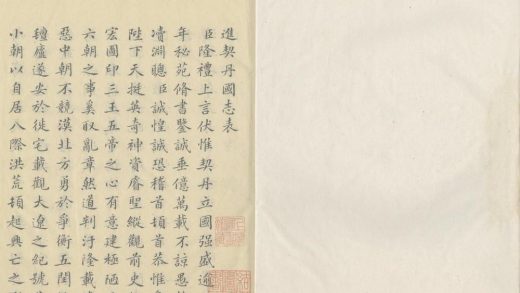 進契丹國志表
臣隆禮上言伏惟契丹立國强盛逾
年秘苑脩書鑒誡垂億萬載不諒愚
瀆淵聰臣誠惶誠恐稽首頓首恭惟
陛下天挺英奇神資睿聖縱觀前史
宏圖印三王五帝之心有意建極陋
六朝之事奚取亂華然適判汙隆載
惡中朝不競漠北方勇於爭衡五閏
氊廬遂安於徙宅載觀大遼之紀號
小朝以自居八際洪荒頓起興亡之